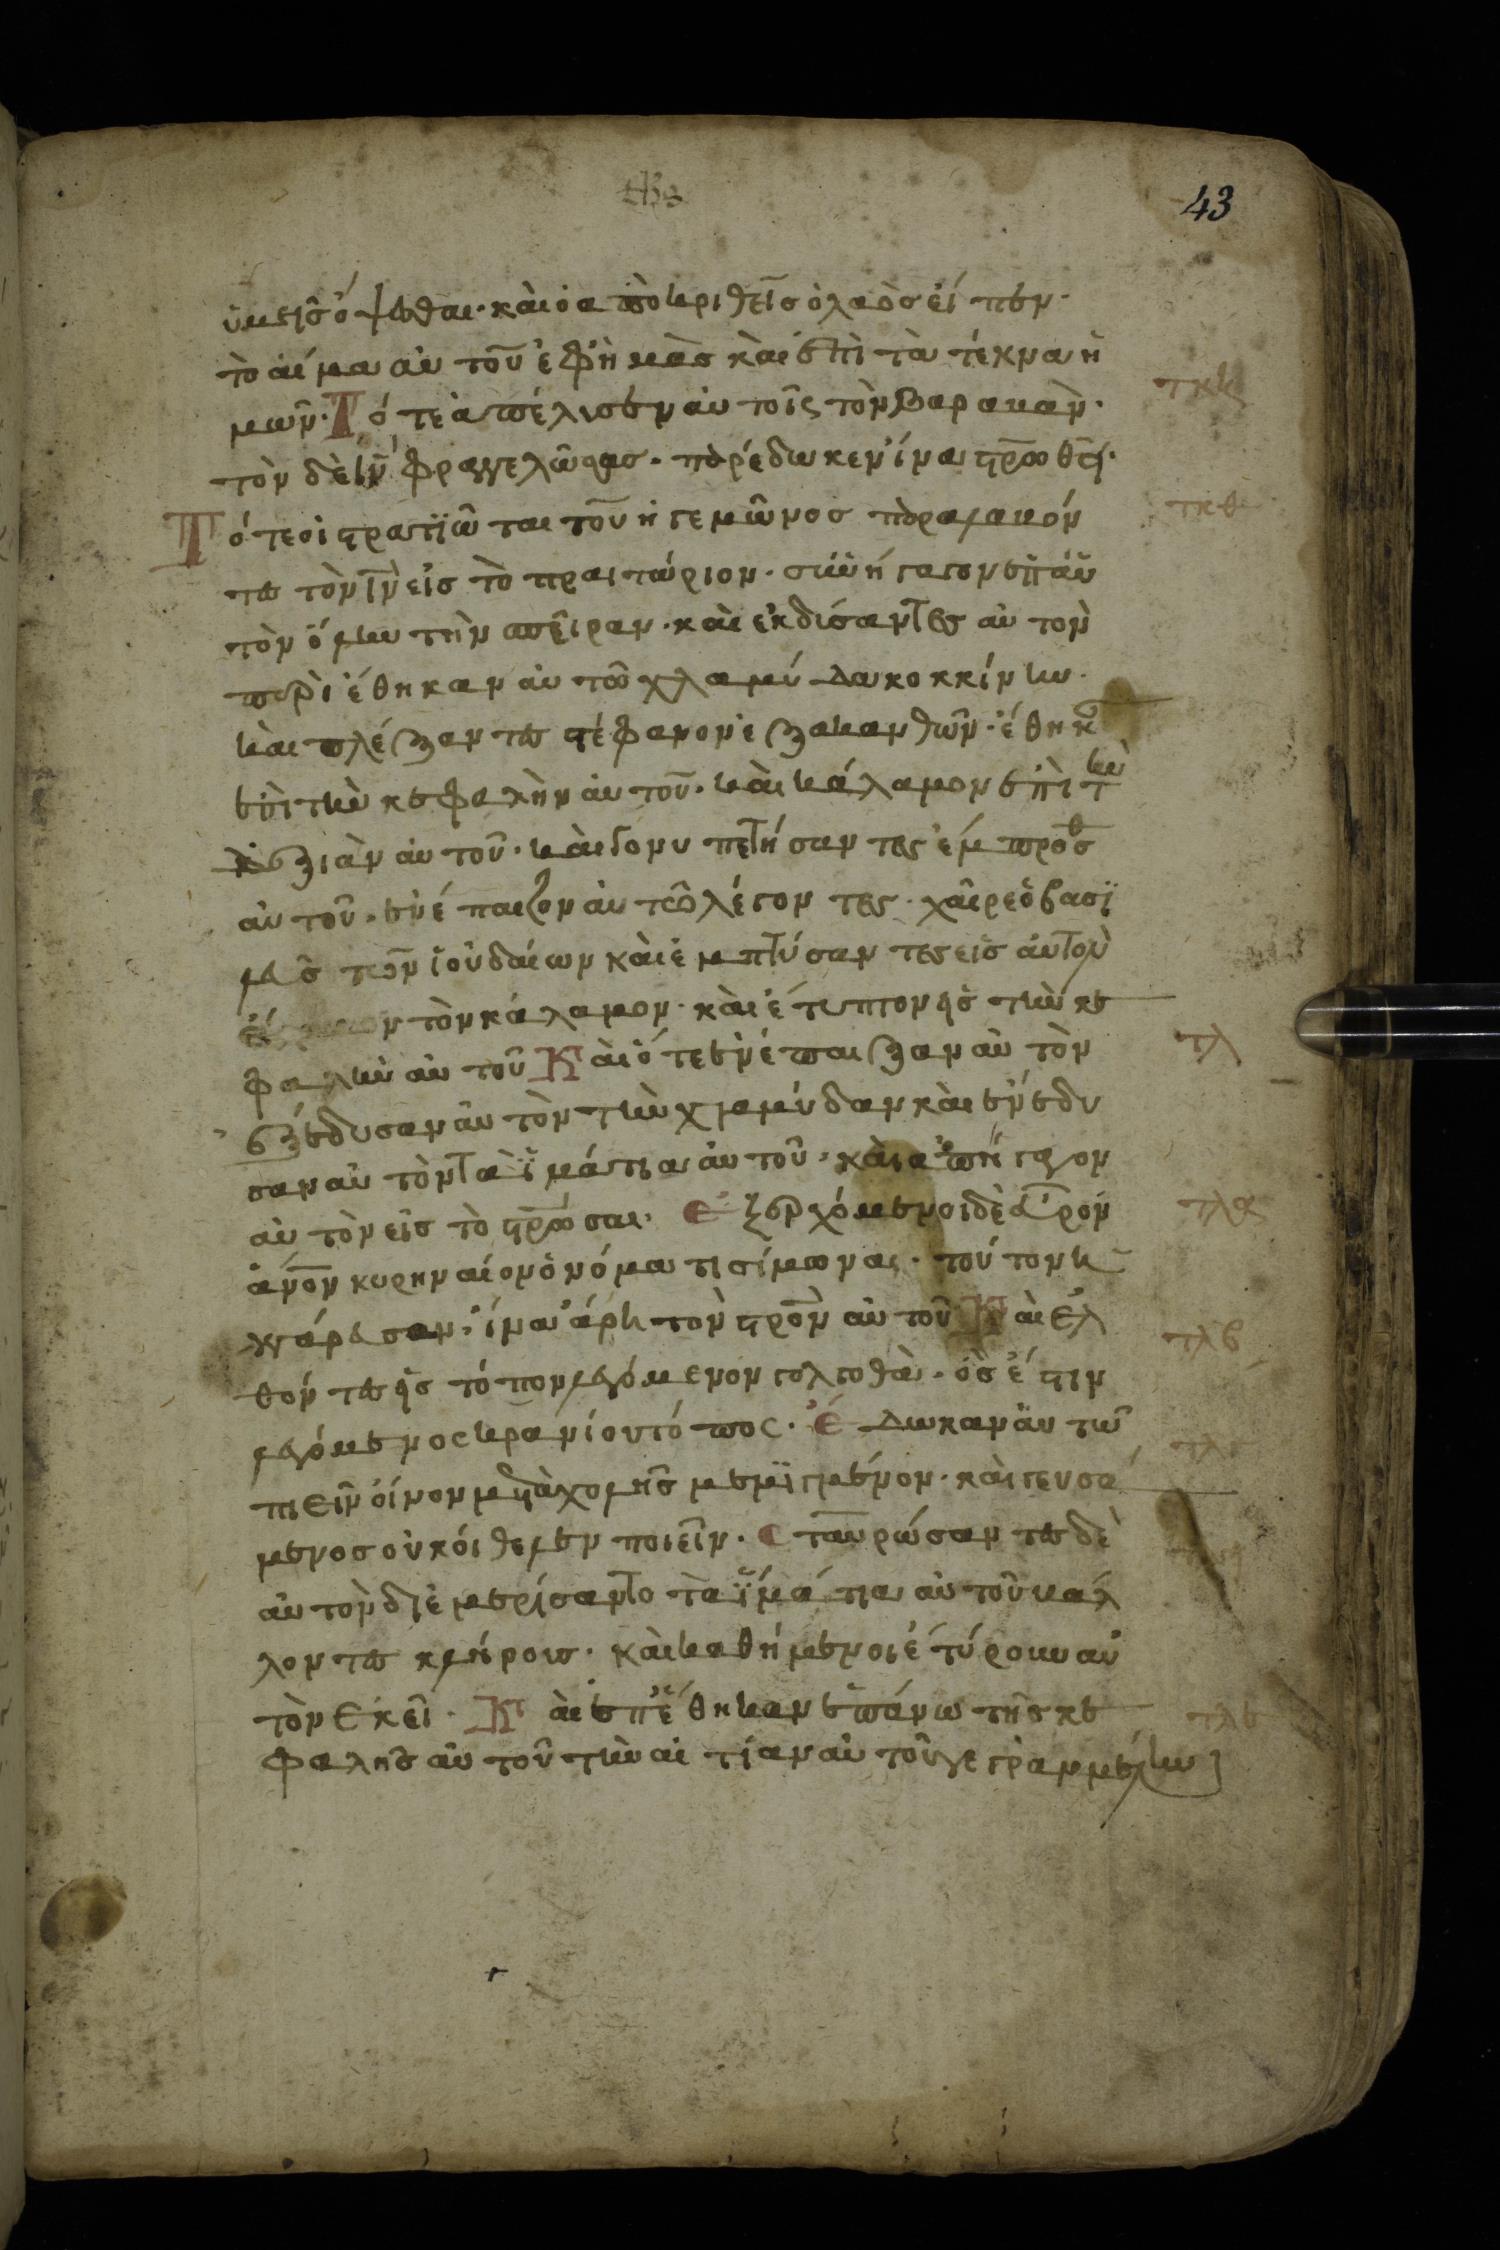 43
ὑμεῖς ὄψεσθαι· καὶ ὁ ἀποκριθεῖς ὁ λαὸς εἶπεν·
τὸ αἷμα αὐτοῦ ἐφ ἡμᾶς καὶ ἐπὶ τὰ τέκνα ἡ
μῶν· Τότε ἀπέλυσεν αὐτοῖς τὸν βαρακᾶν·
τὸν δὲ ιν φραγελώσας· παρέδωκεν ἵνα στρωθῆ·
Τότε οἱ στρατιῶται τοῦ ἡγεμῶνος παραλαβόν
τες τὸν ιν εἰς τὸ πραιτώριον· συνήγαγον ἐπ αὐ
τὸν ὅλην τὴν σπεῖραν· καὶ ἐκδίσαντες αὐτὸν
περιέθηκαν αὐτῶ χλαμύδα κοκκίνην·
καὶ πλέξαντες στέφανον ἐξ ακανθῶν· ἔθηκ
ἐπὶ τὴν κεφαλὴν αὐτοῦ· καὶ κάλαμον ἐπὶ τὴν
δεξιὰν αὐτοῦ· καὶ γονυπετήσαντες ἔμπροσθ
αὐτοῦ· ἐνέπαιζον αὐτῶ λέγοντες· χαῖρε ὁ βασι
λεῦς τῶν ἰουδαίων καὶ ἐμπτύσαντες εἰς αὐτὸν
τὸν κάλαμον· καὶ ἔτυπτον εἰς τὴν κε
φαλὴν αὐτοῦ Καὶ ὅτε ἐνέπαιξαν αὐτὸν
ἐξέδυσαν αὐτὸν τὴν χλαμύδαν καὶ ἐνέδυ
σαν αὐτὸν τὰ ἱμάτια αὐτοῦ· καὶ ἀπήγαγον
αὐτὸν εἰς τὸ στρῶσαι· Ἐξερχόμενοι δὲ εὗρον
ἀνον κυρηναίον ὀνόματι σίμωνας· τούτον ἠ
γγάρευσαν· ἵνα ἄρη τὸν στρον αὐτοῦ Καὶ ἐλ
θόντες εἰς τόπον λεγόμενον γολγοθὰ· ὅς ἐστιν
λεγόμενος κρανίου τόπος· Ἔδωκαν αὐτῶ
πιεῖν οἶνον μετὰ χολῆς μεμιγμένον· καὶ γευσά
μενος οὐκ όιθελεν ποιεῖν· Σταυρώσαντες δὲ
αὐτὸν διεμερίσαντο τὰ ἱμάτια αὐτοῦ καλ
λοντες κλήροις· καὶ καθήμενοι ἐτύρουν αὐ
τὸν ἐκεῖ· Καὶ ἐπέθηκαν ἐπάνω τῆς κε
φαλῆς αὐτοῦ τὴν αἰτίαν αὐτοῦ γεγραμμένην
τκη
τκθ
τλ
τλα
τλβ